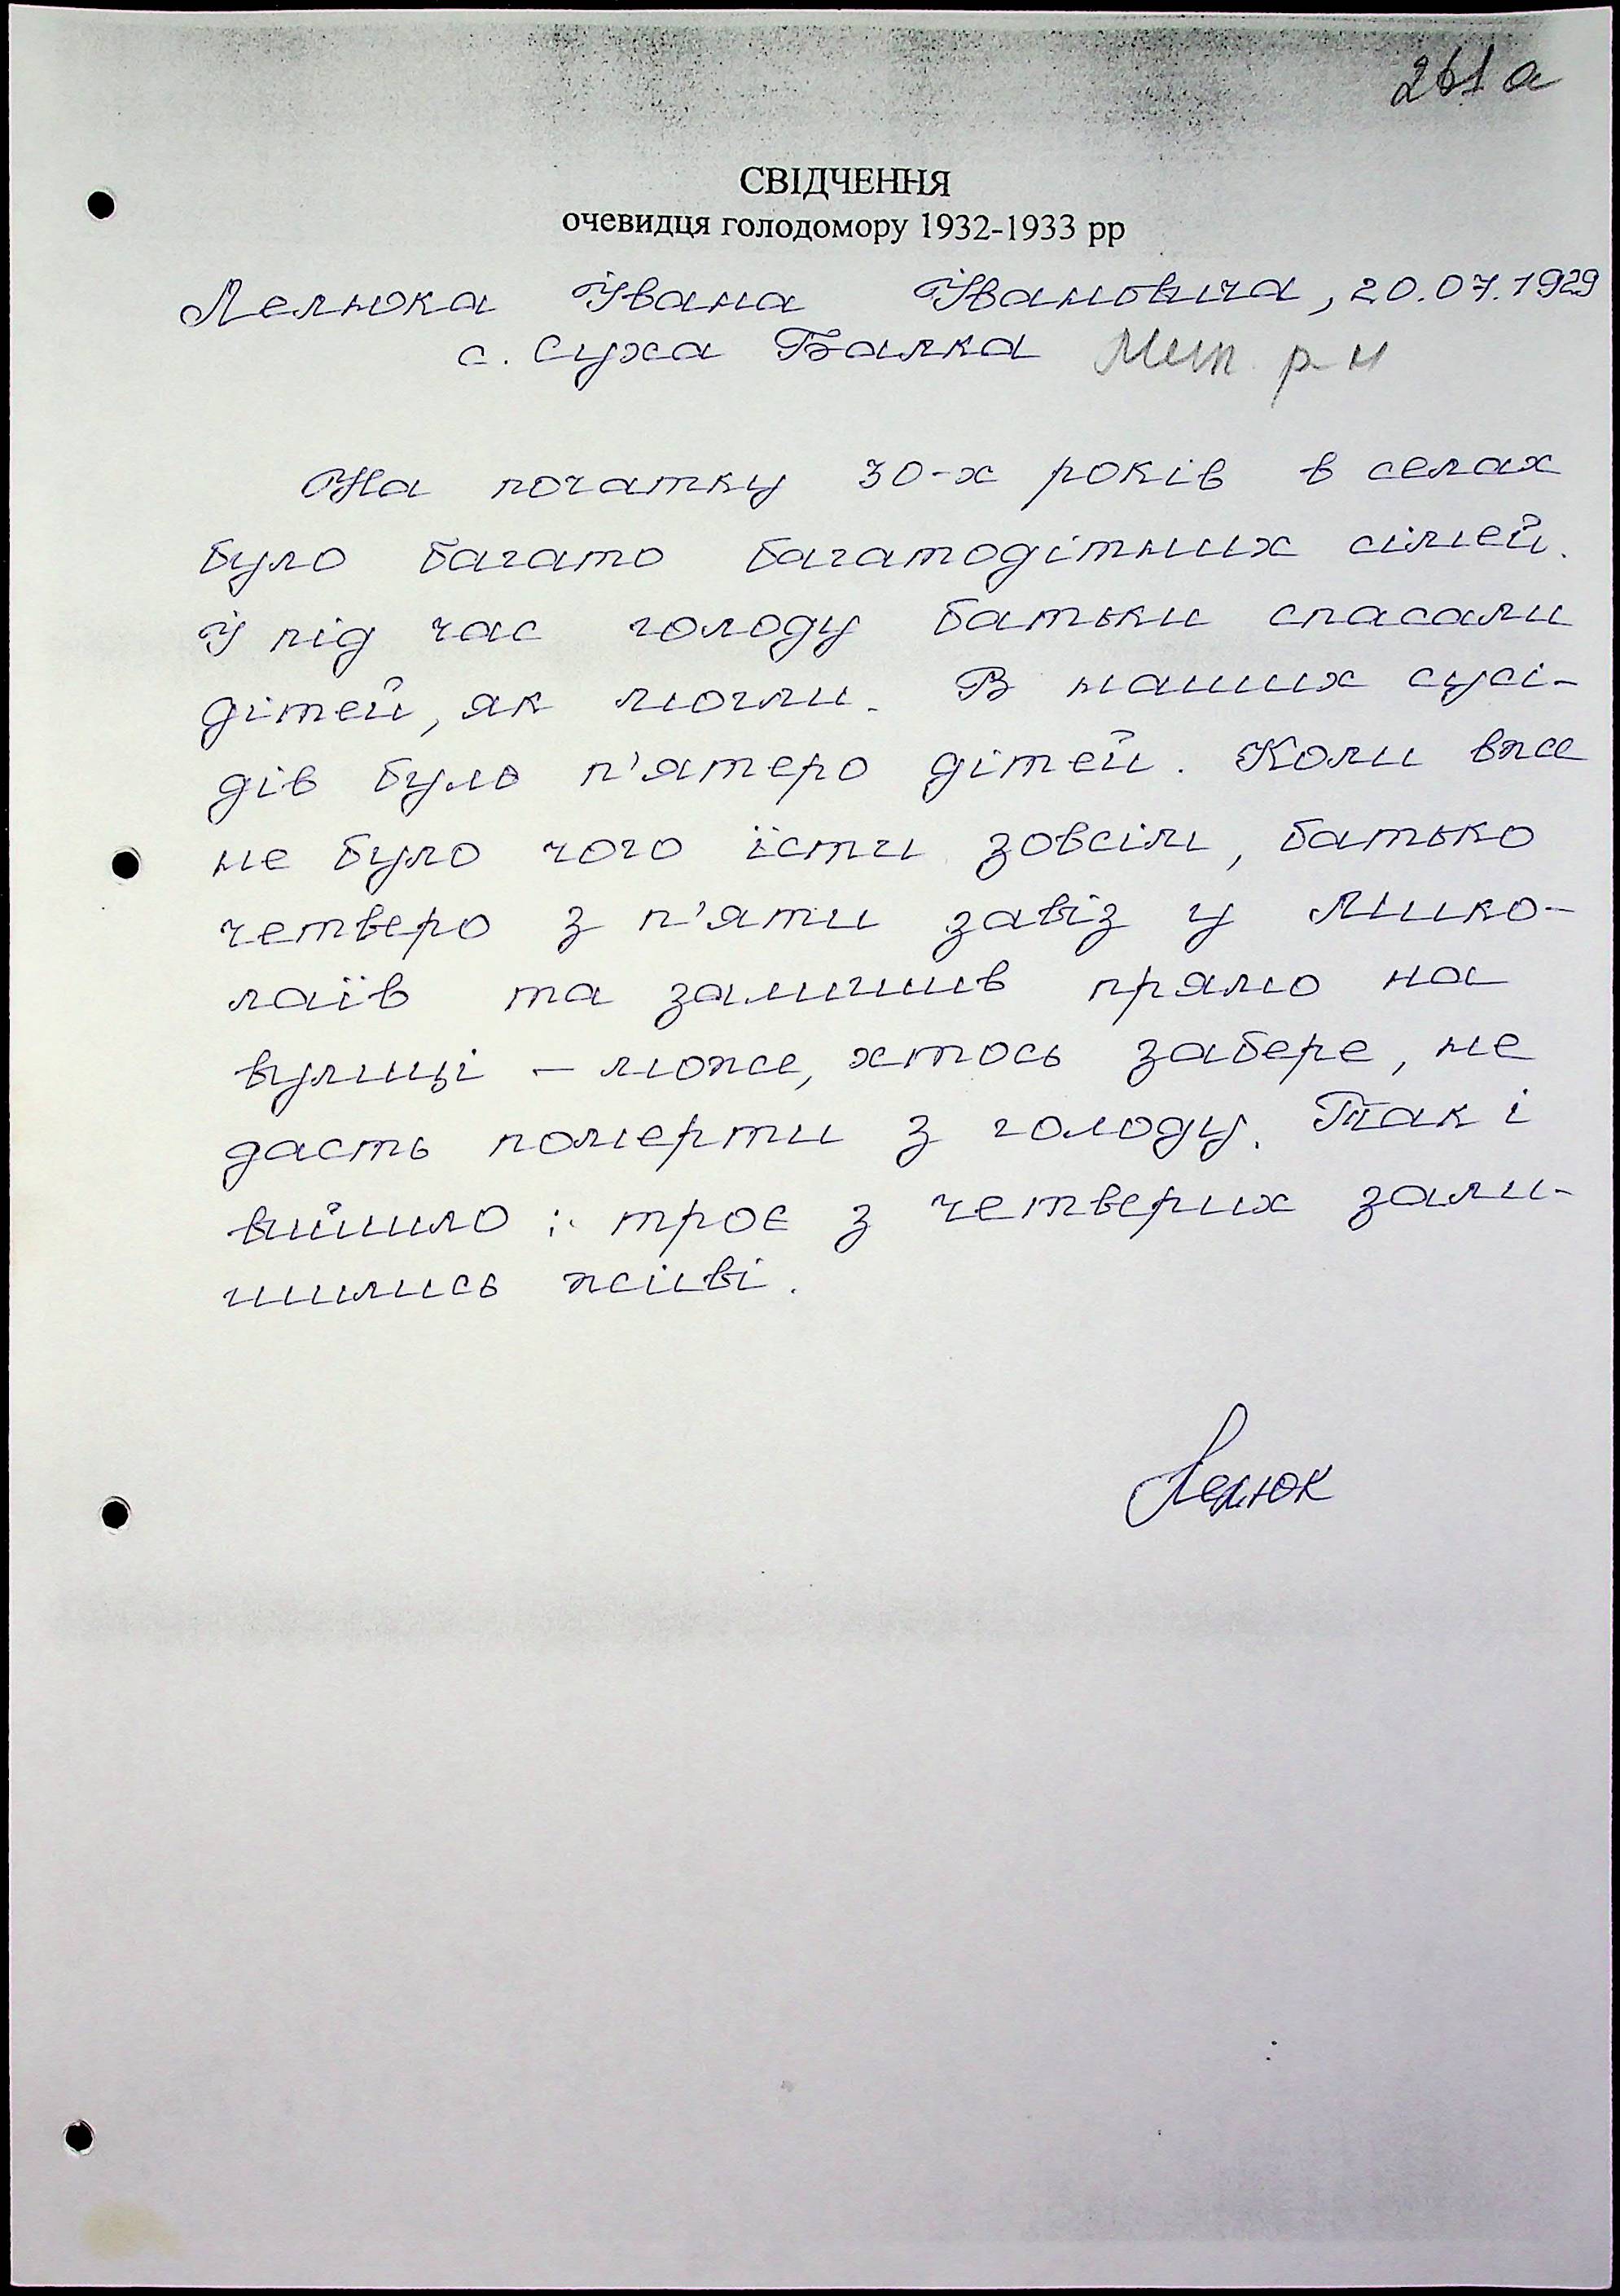 261 а
СВІДЧЕННЯ
очевидця голодомору 1932-1933 рр
Лелюка Івана Івановича, 20.07.1929
с. Суха Балка р-н
На початку 30-х років в селах
було багато багатодітних сімей.
І під час голоду батьки спасали
дітей, як могли. В наших сусі-
дів було п'ятеро дітей. Коли вже
не було чого їсти зовсім, батько
четверо з п'яти завіз у Мико-
лаїв та залишив прямо на
вулиці – може, хтось забере, не
дасть померти з голоду. Так і
вийшло: троє з четверих зали-
шились живі.
Лелюк